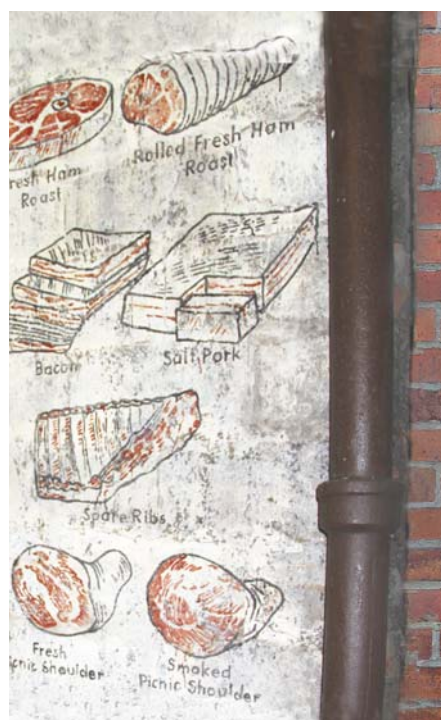 Ribs
Rolled Fresh Ham
Roast
resh Ham
Roast
Bacon
Salt Pork
Spare Ribs
Fresh
icnic Shoulder
Smoked
Picnic Shoulder